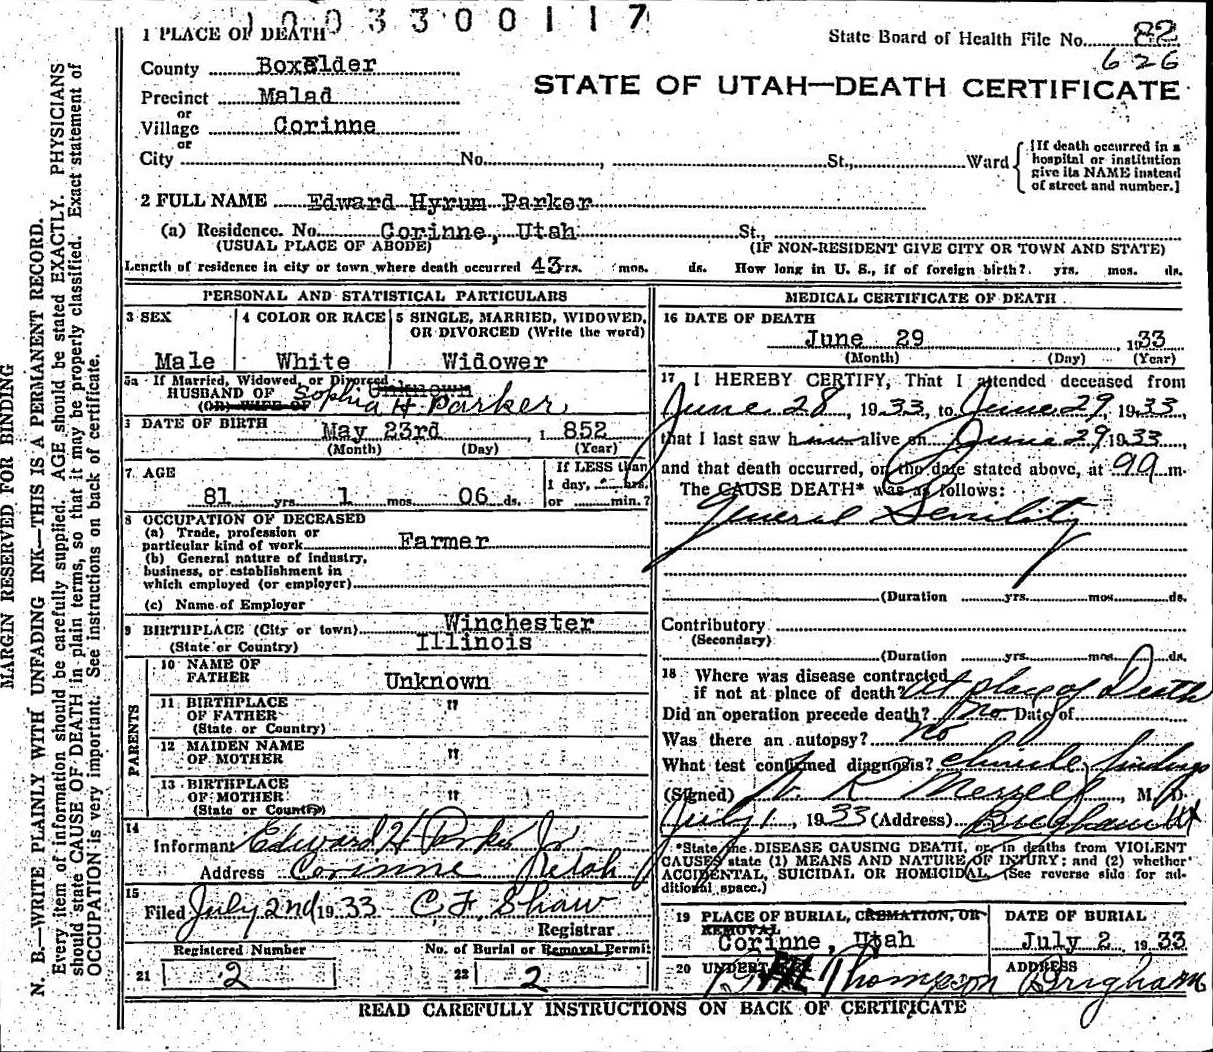 1003300117
1 PLACE OF DEATH
State Board of Health File No. 82
626
County BoxElder
STATE OF UTAH—DEATH CERTIFICATE
Precinct Malad
or
Village Corinne
or
City No. St., Ward
[If death occurred in a hospital or institution give its NAME instead of street and number.]
2 FULL NAME Edward Hyrum Parker
(a) Residence. No. Corinne, Utah St.,
(USUAL PLACE OF ABODE) (IF NON-RESIDENT GIVE CITY OR TOWN AND STATE)
Length of residence in city or town where death occurred 43 yrs. mos. ds. How long in U. S., if of foreign birth? yrs. mos. ds.
PERSONAL AND STATISTICAL PARTICULARS
3 SEX
Male
4 COLOR OR RACE
White
5 SINGLE, MARRIED, WIDOWED, OR DIVORCED (Write the word)
Widower
5a If Married, Widowed, or Divorced Unknown
HUSBAND OF Sophia H. Parker
(OR) WIFE OF
6 DATE OF BIRTH May 23rd 1852
(Month) (Day) (Year)
7 AGE
81 yrs. 1 mos. 06 ds.
If LESS than
1 day, hrs.
or min.?
8 OCCUPATION OF DECEASED
(a) Trade, profession or
particular kind of work Farmer
(b) General nature of industry,
business, or establishment in
which employed (or employer)
(c) Name of Employer
9 BIRTHPLACE (City or town) Winchester
(State or Country) Illinois
PARENTS
10 NAME OF
FATHER Unknown
11 BIRTHPLACE
OF FATHER "
(State or Country)
12 MAIDEN NAME
OF MOTHER "
13 BIRTHPLACE
OF MOTHER "
(State or Country)
14
Informant Edward H Parker Jr
Address Corinne Utah
15
Filed July 2nd 1933 C F. Shaw
Registrar
Registered Number No. of Burial or Removal Permit
21 2 22 2
MEDICAL CERTIFICATE OF DEATH
16 DATE OF DEATH
June 29, 1933
(Month) (Day) (Year)
17 I HEREBY CERTIFY, That I attended deceased from
June 28, 1933, to June 29, 1933,
that I last saw him alive on June 29 1933,
and that death occurred, on the date stated above, at m.
The CAUSE DEATH* was as follows:
General Senility
(Duration yrs. mos. ds.
Contributory
(Secondary)
(Duration yrs. mos. ds.
18 Where was disease contracted
if not at place of death? At place of Death
Did an operation precede death? no Date of
Was there an autopsy? no
What test confirmed diagnosis? findings
(Signed) W. R Merrell, M. D.
July 1, 1933 (Address) Brigham Ut
*State the DISEASE CAUSING DEATH, or, in deaths from VIOLENT
CAUSES state (1) MEANS AND NATURE OF INJURY; and (2) whether
ACCIDENTAL, SUICIDAL OR HOMICIDAL. (See reverse side for additional space.)
19 PLACE OF BURIAL, CREMATION, OR REMOVAL
Corinne, Utah
DATE OF BURIAL
July 2, 1933
20 UNDERTAKER Thompson
ADDRESS
Brigham
READ CAREFULLY INSTRUCTIONS ON BACK OF CERTIFICATE
MARGIN RESERVED FOR BINDING
N. B.—WRITE PLAINLY WITH UNFADING INK—THIS IS A PERMANENT RECORD.
Every item of information should be carefully supplied. AGE should be stated EXACTLY. PHYSICIANS
should state CAUSE OF DEATH in plain terms, so that it may be properly classified. Exact statement of
OCCUPATION is very important. See instructions on back of certificate.